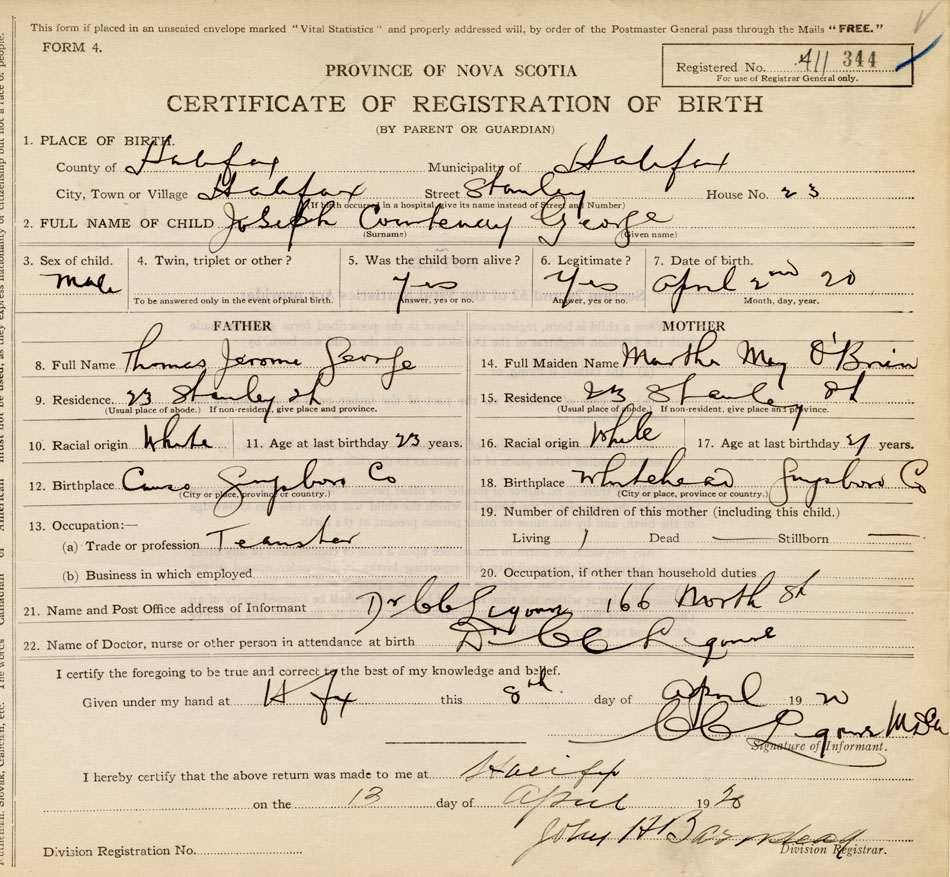 This form if placed in an unsealed envelope marked "Vital Statistics" and properly addressed will, by order of the Postmaster General pass through the Mails "FREE."
FORM 4.
Registered No. 411 344
For use of Registrar General only.
PROVINCE OF NOVA SCOTIA
CERTIFICATE OF REGISTRATION OF BIRTH
(BY PARENT OR GUARDIAN)
1. PLACE OF BIRTH.
County of Halifax Municipality of Halifax
City, Town or Village Halifax Street Stanley House No. 23
(If birth occurred in a hospital give its name instead of Street and Number)
2. FULL NAME OF CHILD Joseph Courtenay George
(Surname) (Given name)
3. Sex of child. 4. Twin, triplet or other? 5. Was the child born alive? 6. Legitimate? 7. Date of birth.
Male Yes Yes April 2nd 20
To be answered only in the event of plural birth. Answer, yes or no. Answer, yes or no. Month, day, year.
FATHER MOTHER
8. Full Name Thomas Jerome George 14. Full Maiden Name Martha May O'Brien
9. Residence. 23 Stanley St 15. Residence 23 Stanley St
(Usual place of abode.) If non-resident, give place and province. (Usual place of abode.) If non-resident, give place and province.
10. Racial origin White 11. Age at last birthday 23 years. 16. Racial origin White 17. Age at last birthday 21 years.
12. Birthplace Canso Guysboro Co 18. Birthplace Whitehead Guysboro Co
(City or place, province or country.) (City or place, province or country.)
13. Occupation:— 19. Number of children of this mother (including this child.)
(a) Trade or profession Teamster Living 1 Dead — Stillborn —
(b) Business in which employed 20. Occupation, if other than household duties
21. Name and Post Office address of Informant Dr C C Ligoure 166 North St
22. Name of Doctor, nurse or other person in attendance at birth Dr C C Ligoure
I certify the foregoing to be true and correct to the best of my knowledge and belief.
Given under my hand at Hfx this 8th day of April 1920
C C Ligoure
Signature of Informant.
I hereby certify that the above return was made to me at Halifax
on the 13 day of April 1920
John H Barnstead
Division Registration No. Division Registrar.